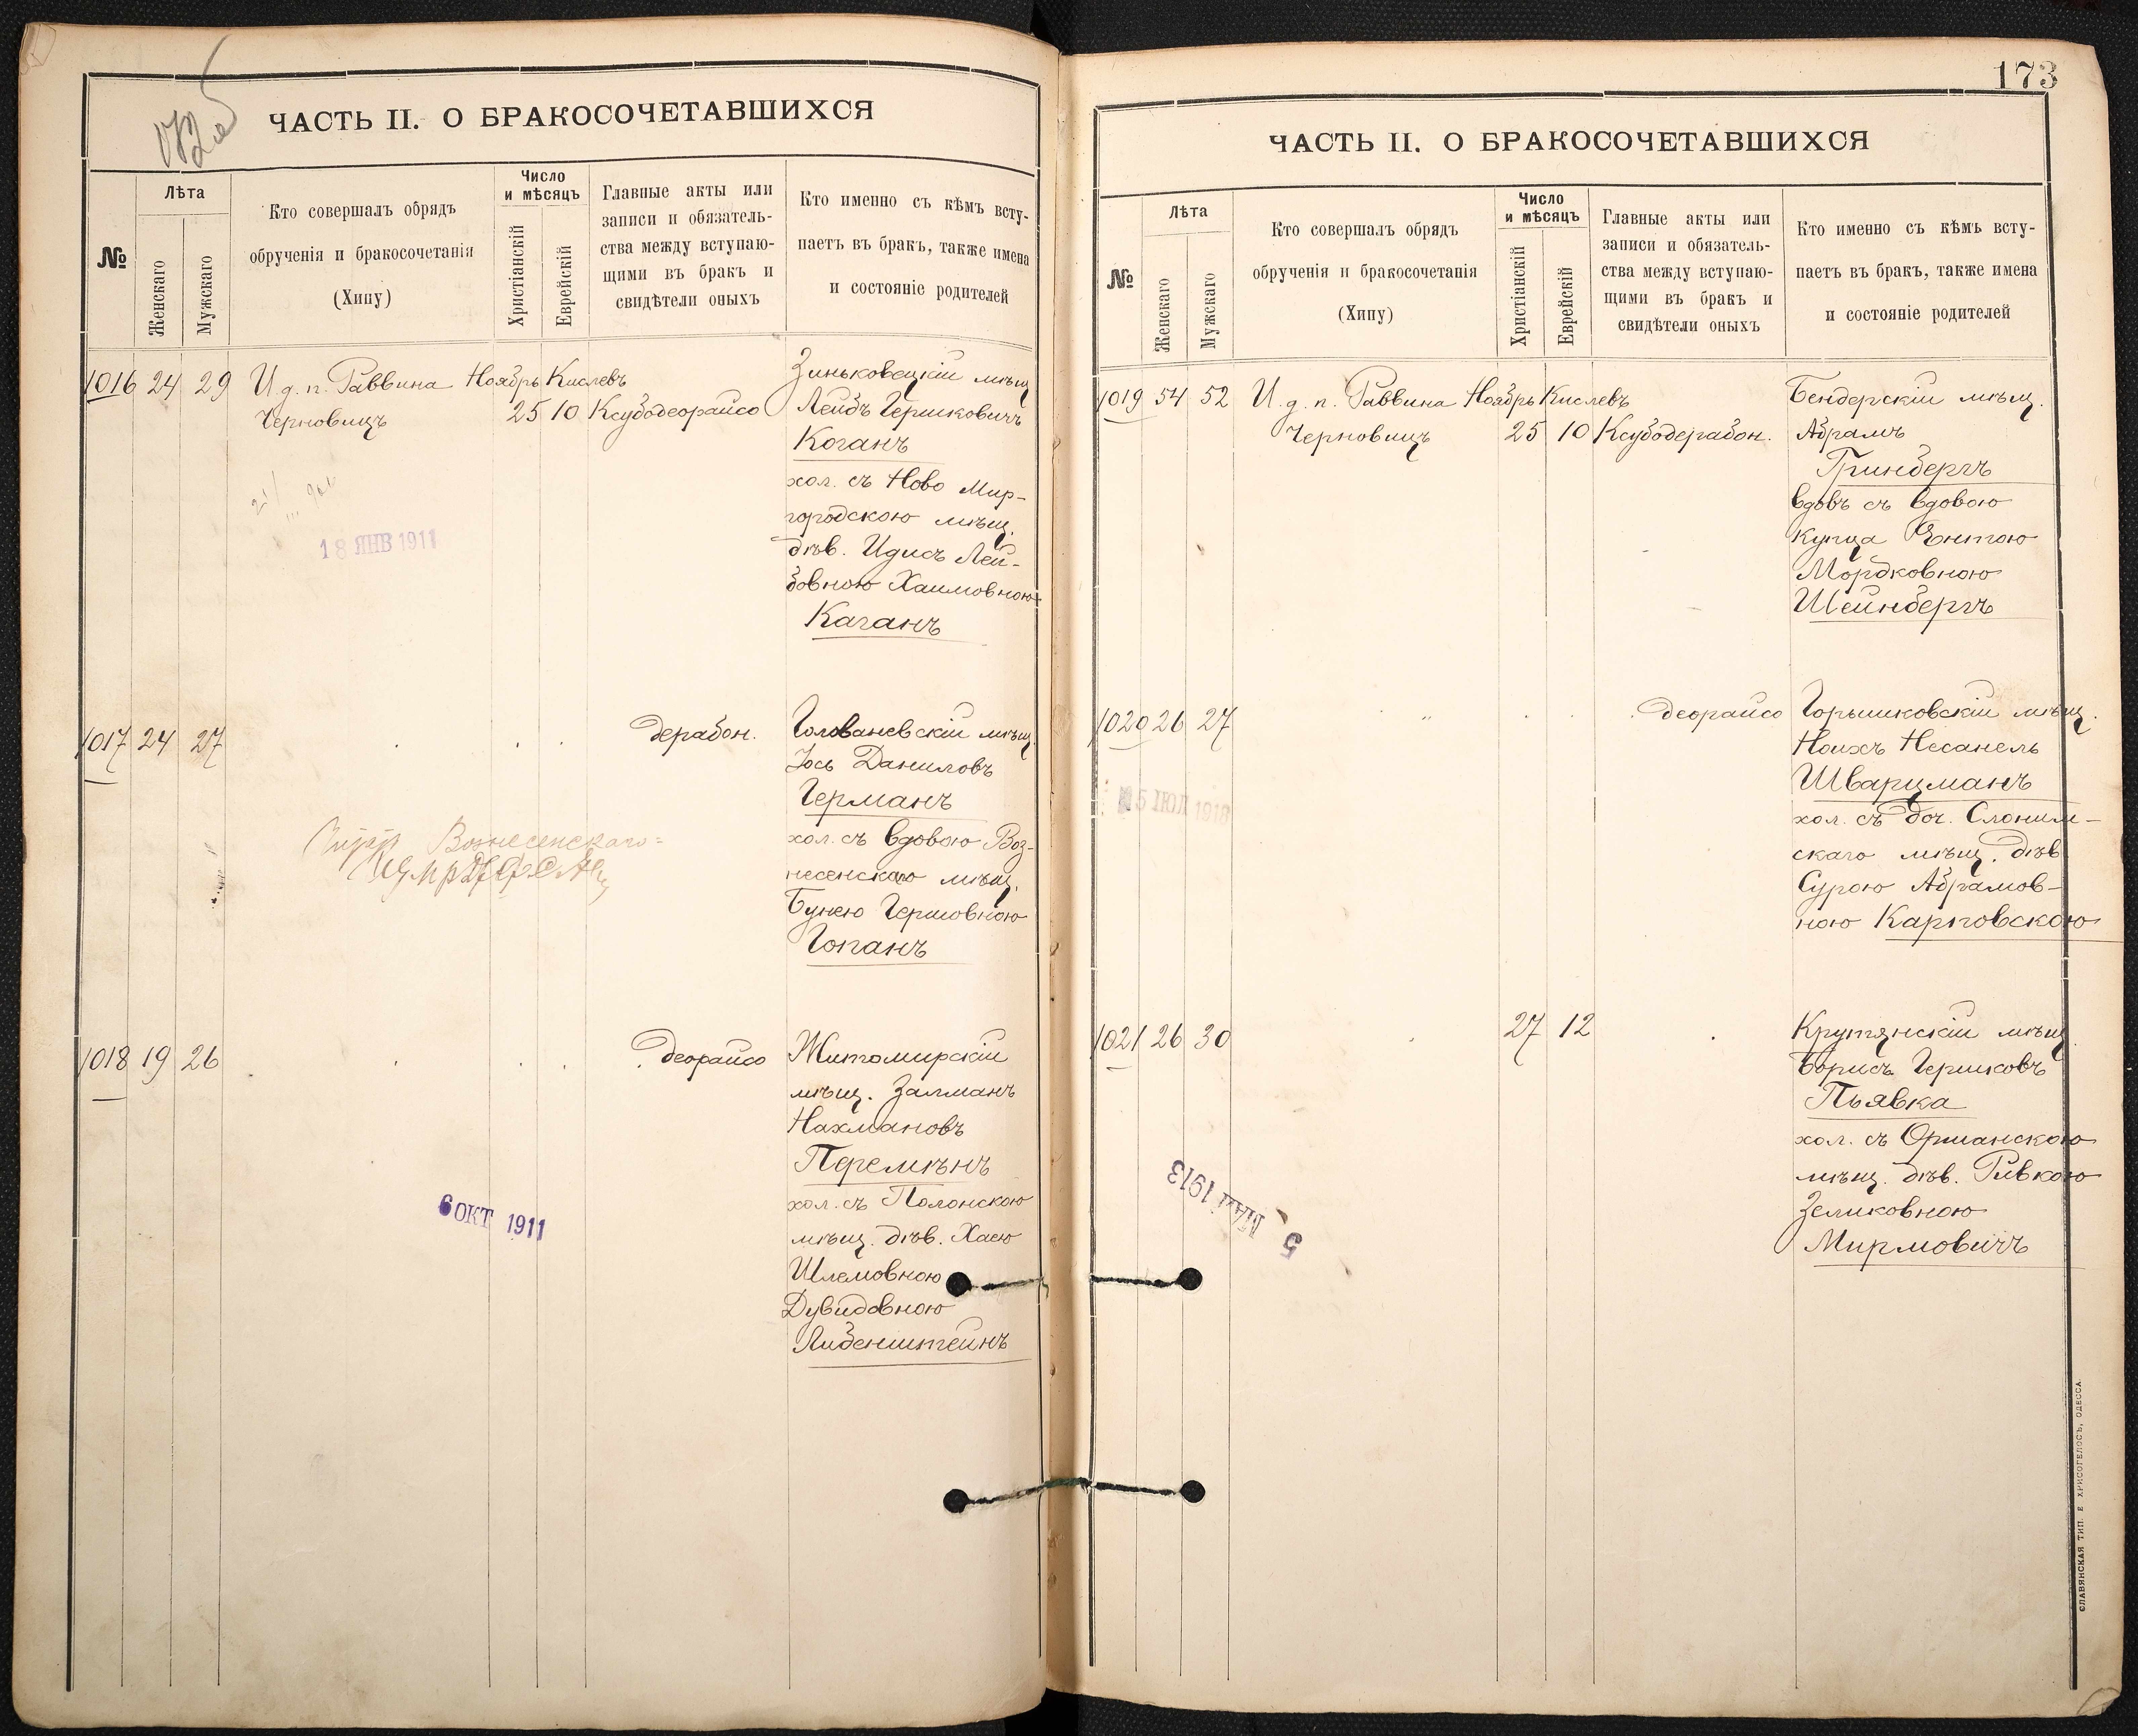 ЧАСТЬ II. О БРАКОСОЧЕТАВШИХСЯ
№
Лѣта
Женскаго
Мужскаго
Кто совершалъ обрядъ
обрученія и бракосочетанія
(Хипу)
Число
и мѣсяцъ
Христіанскій
Еврейскій
Главные акты или
записи и обязатель-
ства между вступаю-
щими въ бракъ и
свидѣтели оныхъ
Кто именно съ кѣмъ всту-
паетъ въ бракъ, также имена
и состояніе родителей
1016 24 29 И. д. п. Раввина Ноябрь Кислевъ
Черновицъ 25 10 Ксубодеорайсо
Зиньковецкій мѣщ
Лейбъ Гершковичъ
Коганъ
хол. съ Ново Мир-
городскою мѣщ.
дѣв. Идисъ Лей-
бовною Хаимовною
Каганъ
18 ЯНВ 1911
1017 24 27 дерабон.
Голованевскій мѣщ.
Іось Даниловъ
Германъ
хол. съ вдовою Воз-
несенскаго мѣщ.
Бунею Гершовною
Гопанъ
Вознесенскаго
1018 19 26 деорайсо
Житомирскій
мѣщ. Залманъ
Нахмановъ
Перемѣнъ
хол. съ Полонскою
мѣщ. дѣв. Хаею
Шлемовною
Дувидовною
Либенштейнъ
6 ОКТ 1911
173
ЧАСТЬ II. О БРАКОСОЧЕТАВШИХСЯ
№
Лѣта
Женскаго
Мужскаго
Кто совершалъ обрядъ
обрученія и бракосочетанія
(Хипу)
Число
и мѣсяцъ
Христіанскій
Еврейскій
Главные акты или
записи и обязатель-
ства между вступаю-
щими въ бракъ и
свидѣтели оныхъ
Кто именно съ кѣмъ всту-
паетъ въ бракъ, также имена
и состояніе родителей
1019 54 52 И. д. п. Раввина Ноябрь Кислевъ
Черновицъ 25 10 Ксубодерабон.
Бендерскій мѣщ.
Абрамъ
Гринбергъ
вдовъ съ вдовою
купца Энтою
Мордковною
Шейнбергъ
1020 26 27 " деорайсо
Горышковскій мѣщ.
Ноихъ Несанель
Шварцманъ
хол. съ доч. Слоним-
скаго мѣщ. дѣв
Сурою Абрамов-
ною Карповскою
1021 26 30 27 12
Крутянскій мѣщ.
Борисъ Гершковъ
Пьявка
хол. съ Орманскою
мѣщ. дѣв. Ривкою
Зеликовною
Мирмовичъ
5 МАЙ 1913
СЛАВЯНСКАЯ ТИП. Е ХРИСОГЕЛОСЪ, ОДЕССА.